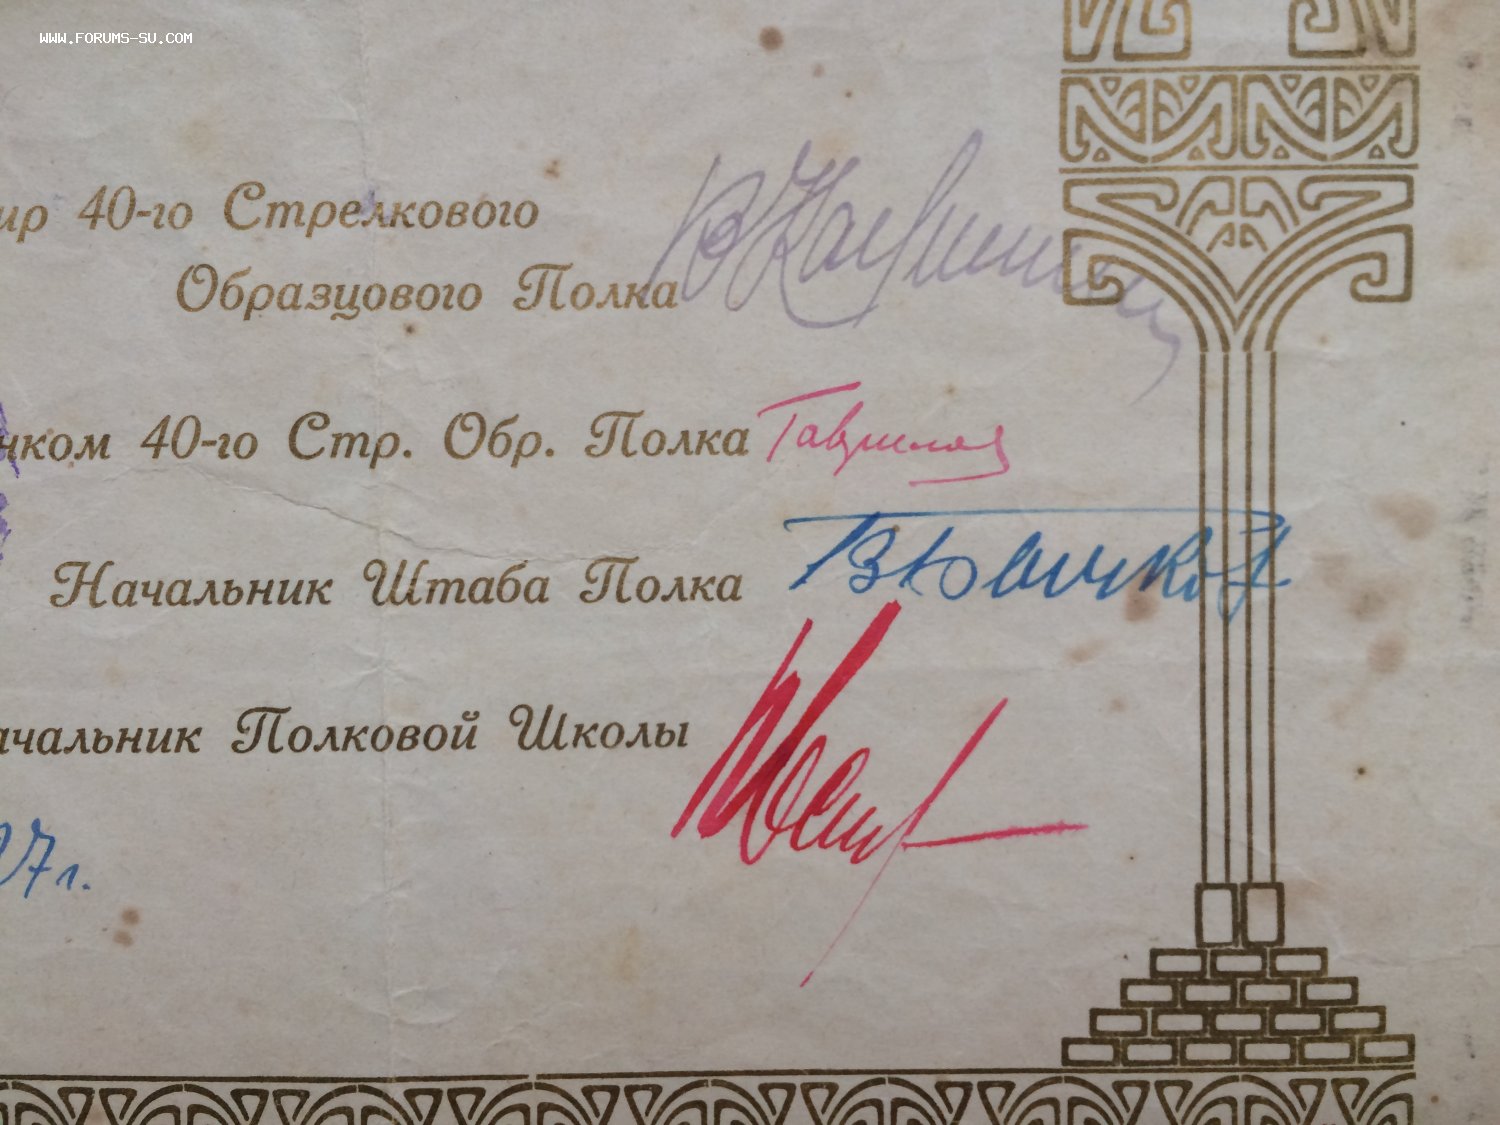 WWW.FORUMS-SU.COM
ир 40-го Стрелкового
Образцового Полка
нком 40-го Стр. Обр. Полка Гаврилов
Начальник Штаба Полка ВБычков
ачальник Полковой Школы
27г.